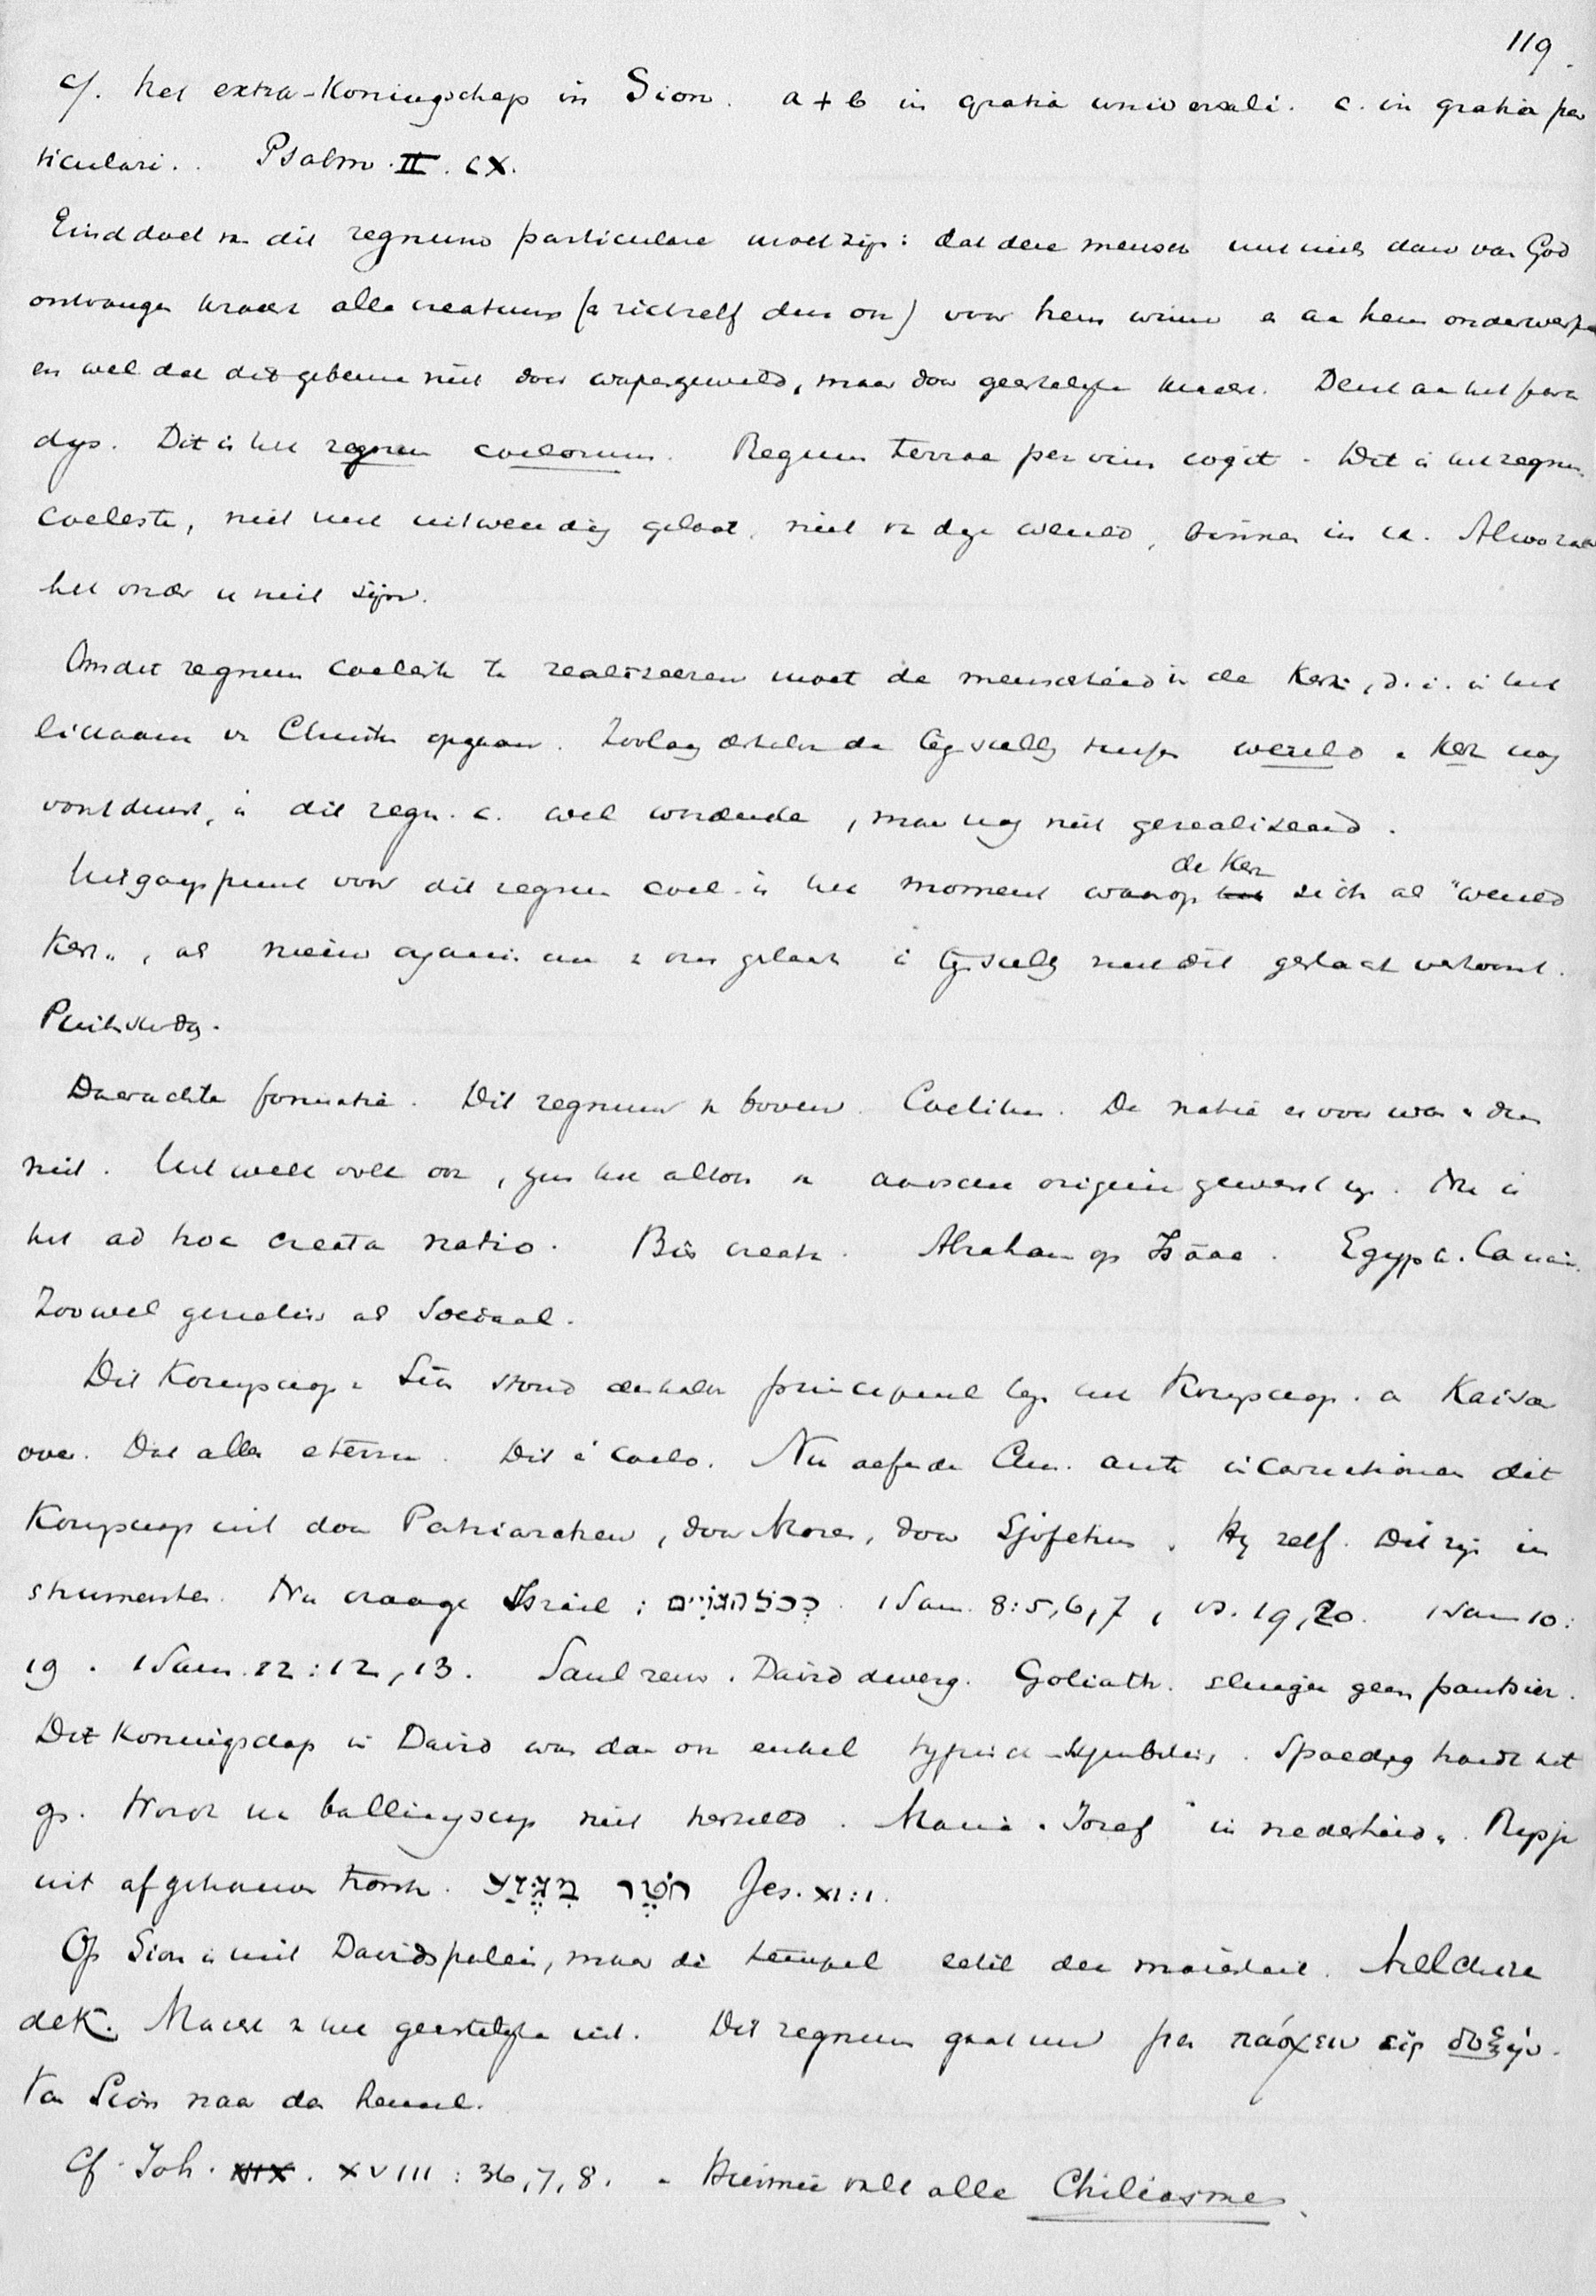 119.
c/. het extra-Koningschap in Sion. a + b in gratia universali. c. in gratia par
ticulari. . Psalm. II. CX.
Einddoel van dit regnum particulare moet zijn: dat deze mensch met niets dan van God
ontvangen kracht alle creaturen (a zichzelf dus ook) voor hem winne en aan hem onderwerpe
en wel dat dit gebeure niet door wapengeweld, maar door geestelijke kracht. Denk aan het para
dys. Dit is het regnum coelorum. Regnum terrae per vim cogit. Dit is het regnum
coeleste, niet met uitwendig gelaat, niet van deze wereld, binnen in u. Alwaar
het onder u niet zijn.
Om dit regnum coeleste te realizeeren moet de menschheid in de Kerk, d.i. in het
lichaam van Christus opgaan. Zoolang derhalve de tegenstelling tusschen wereld en Kerk nog
voortduurt, is dit regn. c. wel wordende, maar nog niet gerealiseerd.
Uitgangspunt voor dit regnum coel. is het moment waarop de Kerk zich als "wereld
Kerk", als nieuw organisme in tegenstelling met dit geslacht vertoont.
Pinksterdag.
Daarachter formatie. Dit regnum van boven. Coelitus. De natie er voor was er dus
niet. Uit welk volk ook, zou het altoos van aardsche origine geweest zijn. Nu is
het ad hoc creata natio. Bis creata. Abraham op Isaac. Egypte. Canaan.
Zoowel genetisch als Sociaal.
Dit Koningschap in Sion stond derhalve principieel tegen het Koningschap. a Kaisar
over. Dat alles e terra. Dit e coelo. Nu oefende Chr. ante incarnationem dit
Koningschap uit door Patriarchen, door Mozes, door Sjofetim. Hij zelf. Dit zijn in
strumenten. Nu vraagt Israel: כְּכָל־הַגּוֹיִם. 1 Sam. 8:5,6,7, vs. 19,20. 1 Sam 10:
19. 1 Sam. 12:12,13. Saul reus. David dwerg. Goliath. slinger geen pantsier.
Dit Koningschap in David was dan ook enkel typisch-symbolisch. Spoedig houdt het
op. Wordt na ballingschap niet hersteld. Maria en Jozef "in nederheid". Rijsje
uit afgehouwen tronk. חֹטֶר מִגֶּזַע Jes. XI:1.
Op Sion is niet Davids paleis, maar de tempel zetel der majesteit. Melchize
dek. Macht van het geestelijke uit. Dit regnum gaat nu per πάσχειν εἰς δόξην.
Van Sion naar den hemel.
Cf. Joh. XIX. XVIII: 36,7,8. - Hiermee valt alle Chiliasme.